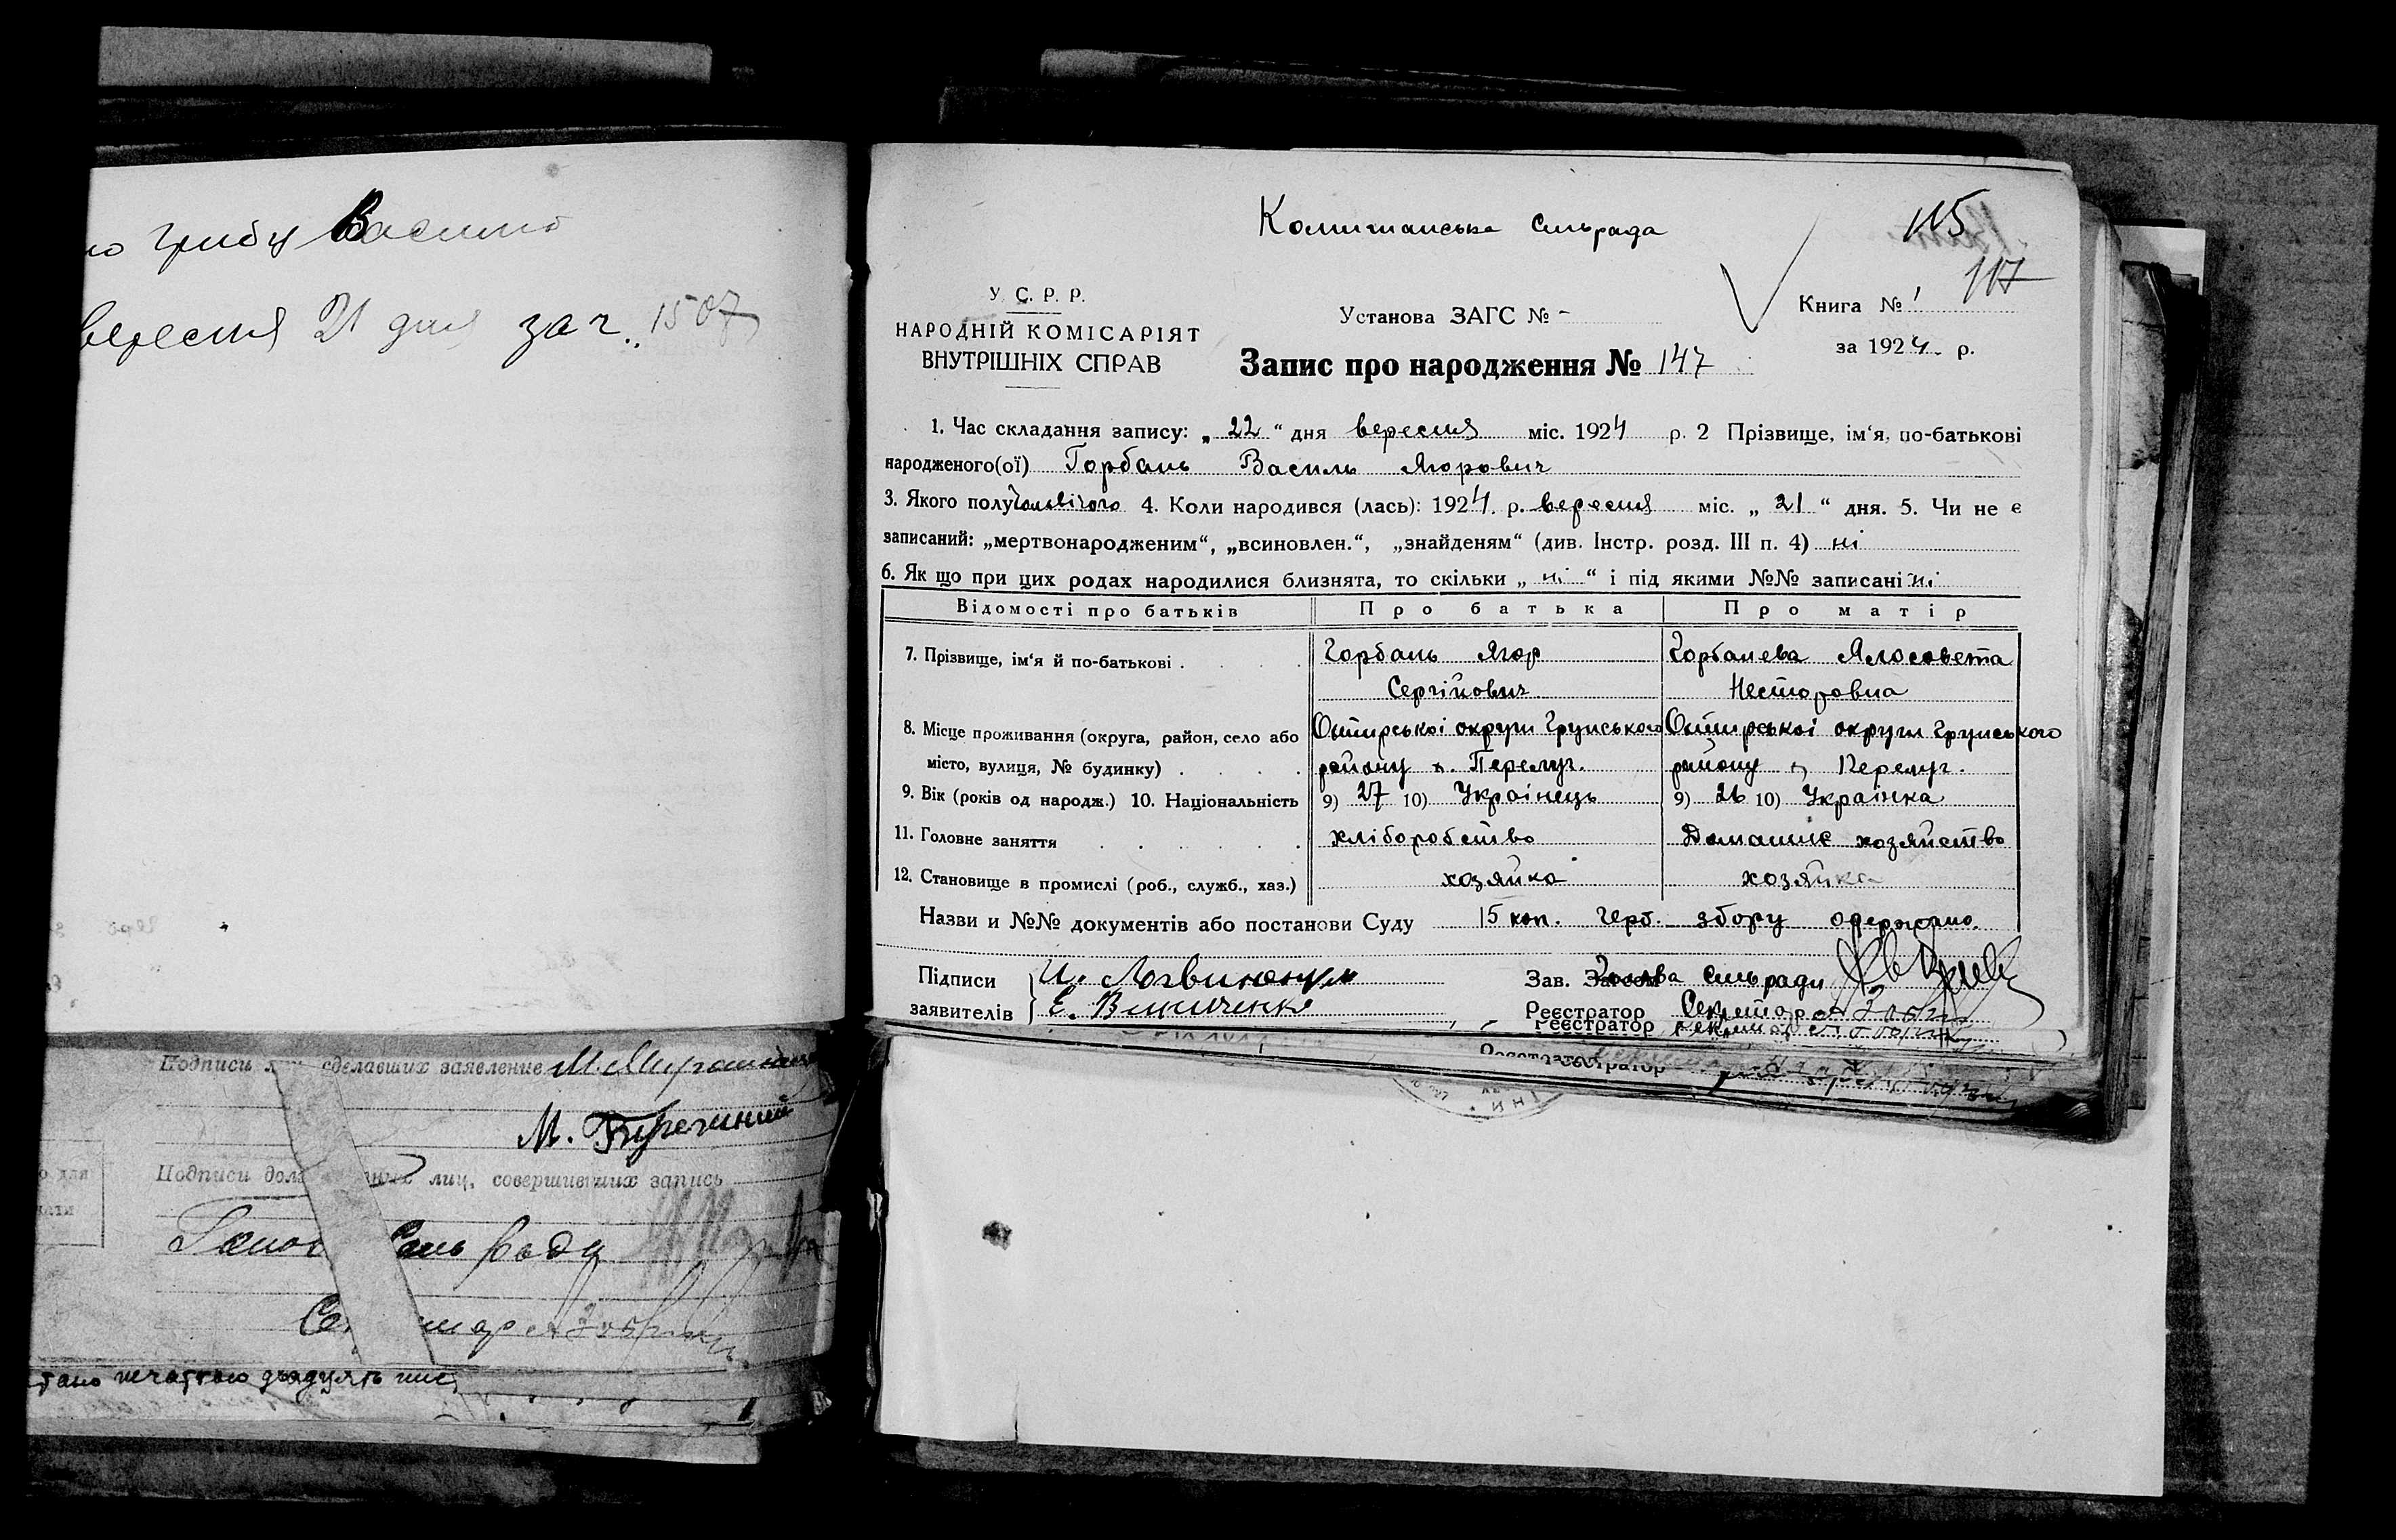 но Грибу Василю
вересня 21 дня за г. 1507
Подписи сделавших заявление М.
М.
Подписи лиц, совершивших запись
Сель Раду
печаттаю
Комишанська Сільрада
115
117
У. С. Р. Р.
НАРОДНІЙ КОМІСАРІЯТ
ВНУТРІШНІХ СПРАВ
Установа ЗАГС № -
Книга № 1
за 1924 р.
Запис про народження № 147
1. Час складання запису: „ 22 “ дня вересня міс. 1924 р. 2 Прізвище, ім‘я, по-батькові
народженого(ої) Горбань Василь Ягорович
3. Якого полу чоловічого 4. Коли народився (лась): 1924. р. вересня міс. „ 21 “ дня. 5. Чи не є
записаний: „мертвонародженим“, „всиновлен.“, „знайденям“ (див. Інстр. розд. III п. 4) ні
6. Як що при цих родах народилися близнята, то скільки „ ні “ і під якими №№ записані ні
Відомості про батьків Про батька Про матір
7. Прізвище, ім‘я й по-батькові . Горбань Ягор Горбанева Ялосовета
Сергійович Несторовна
8. Місце проживання (округа, район, село або Охтирської округи Грунського Охтирської округи Грунського
місто, вулиця, № будинку) . району х. Перелуг. району х. Перелуг.
9. Вік (років од народж.) 10. Національність 9) 27 10) Українець 9) 26 10) Українка
11. Головне заняття хліборобство Домашнє хозяйство
12. Становище в промислі (роб., служб., хаз.) хозяйка хозяйка
Назви и №№ документів або постанови Суду 15 коп. герб. збору одержано.
Підписи И. Логвиненко Зав. Загсом Голова Сильради
заявителів Е. Винниченко Реєстратор Секретар
Реєстратор секретар
Реєстратор